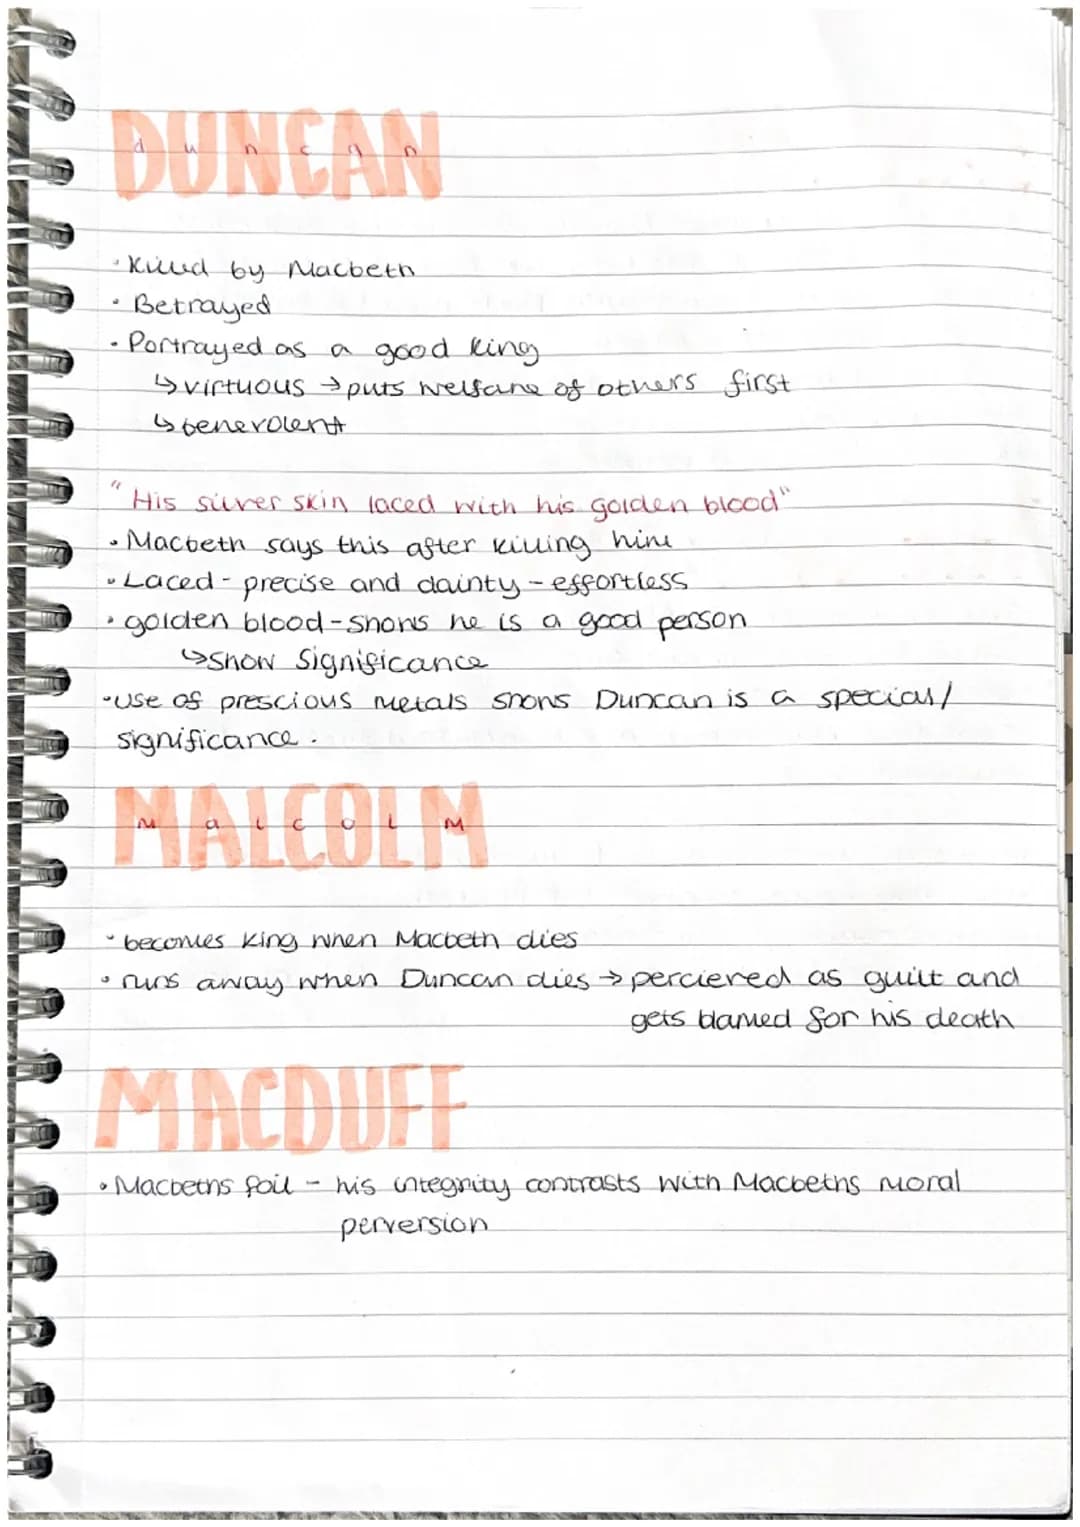 DUNCAN
duncan
• Killed by Macbeth
• Betrayed
• Portrayed as a good king
↳ virtuous → puts welfare of others first
↳ benevolent
"His silver skin laced with his golden blood"
• Macbeth says this after killing him
• Laced - precise and dainty - effortless
• golden blood - shows he is a good person
↳ show significance
• use of prescious metals shows Duncan is a special/
significance.
MALCOLM
MalcolM
• becomes king when Macbeth dies
• runs away when Duncan dies → percieved as guilt and
gets blamed for his death
MACDUFF
• Macbeths foil - his integrity contrasts with Macbeths moral
perversion